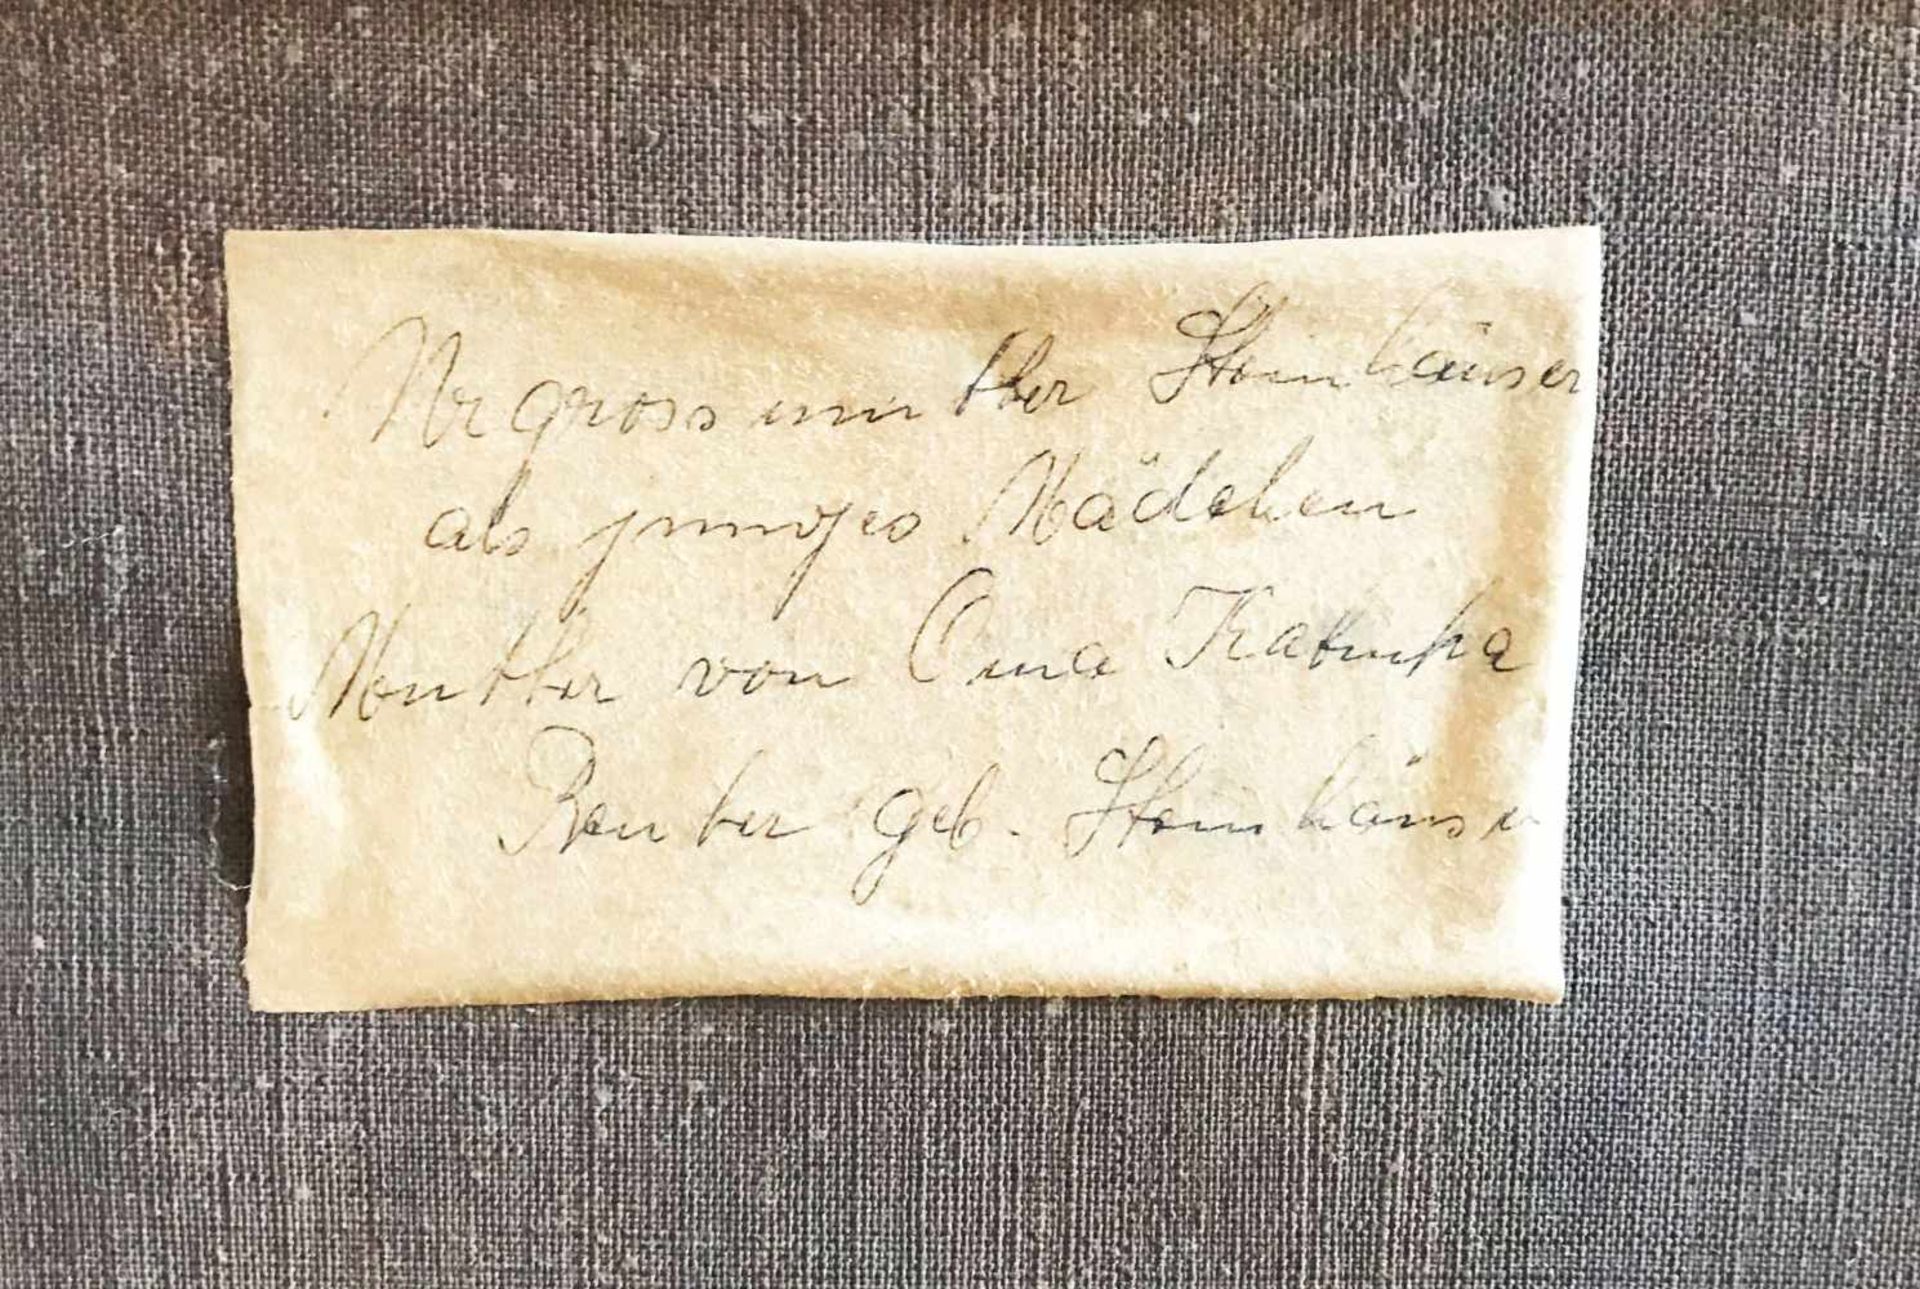 Urgrossmutter Steinhäuser
als junges Mädchen
Mutter von Oma Katinka
geb. Steinhäuser